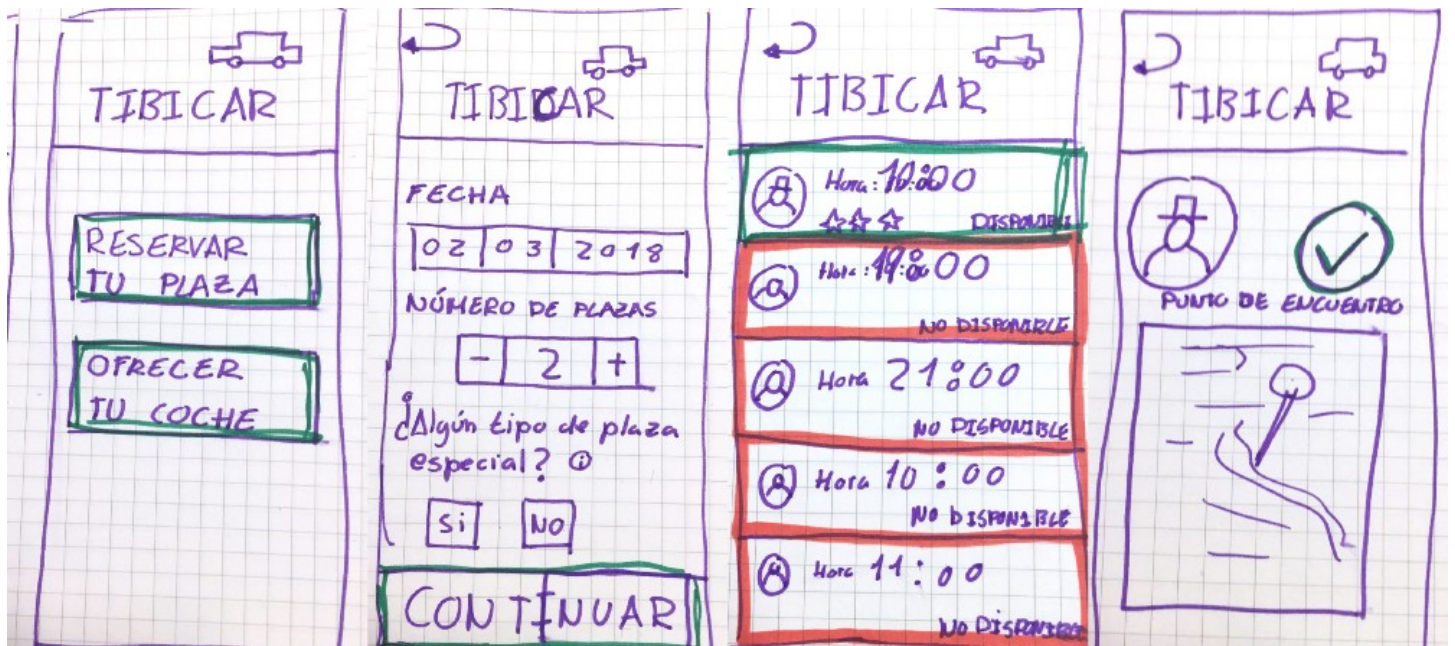 TIBICAR
RESERVAR
TU PLAZA
OFRECER
TU COCHE
TIBICAR
FECHA
02 03 2018
NÚMERO DE PLAZAS
- 2 +
¿Algún tipo de plaza
especial? i
Si NO
CONTINUAR
TIBICAR
Hora:
DISPONIBLE
Hora:
NO DISPONIBLE
Hora 21:00
NO DISPONIBLE
Hora 10:00
NO DISPONIBLE
Hora 11:00
NO DISPONIBLE
TIBICAR
PUNTO DE ENCUENTRO